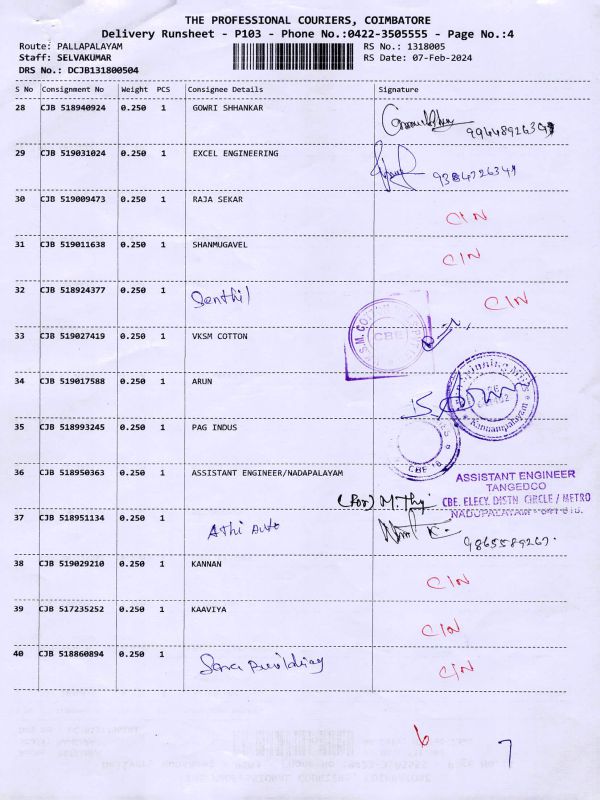 THE PROFESSIONAL COURIERS, COIMBATORE
Delivery Runsheet - P103 - Phone No.:0422-3505555 - Page No.:4
Route: PALLAPALAYAM RS No.: 1318005
Staff: SELVAKUMAR RS Date: 07-Feb-2024
DRS No.: DCJB131800504
S No Consignment No Weight PCS Consignee Details Signature
28 CJB 518940924 0.250 1 GOWRI SHHANKAR
29 CJB 519031024 0.250 1 EXCEL ENGINEERING 9384726341
30 CJB 519009473 0.250 1 RAJA SEKAR CIN
31 CJB 519011638 0.250 1 SHANMUGAVEL CIN
32 CJB 518924377 0.250 1 Senthil CIN
33 CJB 519027419 0.250 1 VKSM COTTON CBE
34 CJB 519017588 0.250 1 ARUN
Kannampalayam
35 CJB 518993245 0.250 1 PAG INDUS
CBE
36 CJB 518950363 0.250 1 ASSISTANT ENGINEER/NADAPALAYAM
ASSISTANT ENGINEER
TANGEDCO
(For) CBE. ELECY. DISTN CIRCLE / METRO
37 CJB 518951134 0.250 1 Athi Auto
38 CJB 519029210 0.250 1 KANNAN CIN
39 CJB 517235252 0.250 1 KAAVIYA CIN
40 CJB 518860894 0.250 1 CIN
6 7